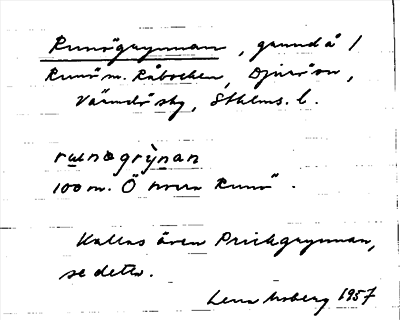 Runögrynnan, grund å /
Runö m. Råbocken, Djurö sn,
Värmdö skg, Sthlms. l.
runøgrỳnan
100 m. Ö Norra Runö.
Kallas även Prickgrynnan,
se detta.
Lena Moberg 1957